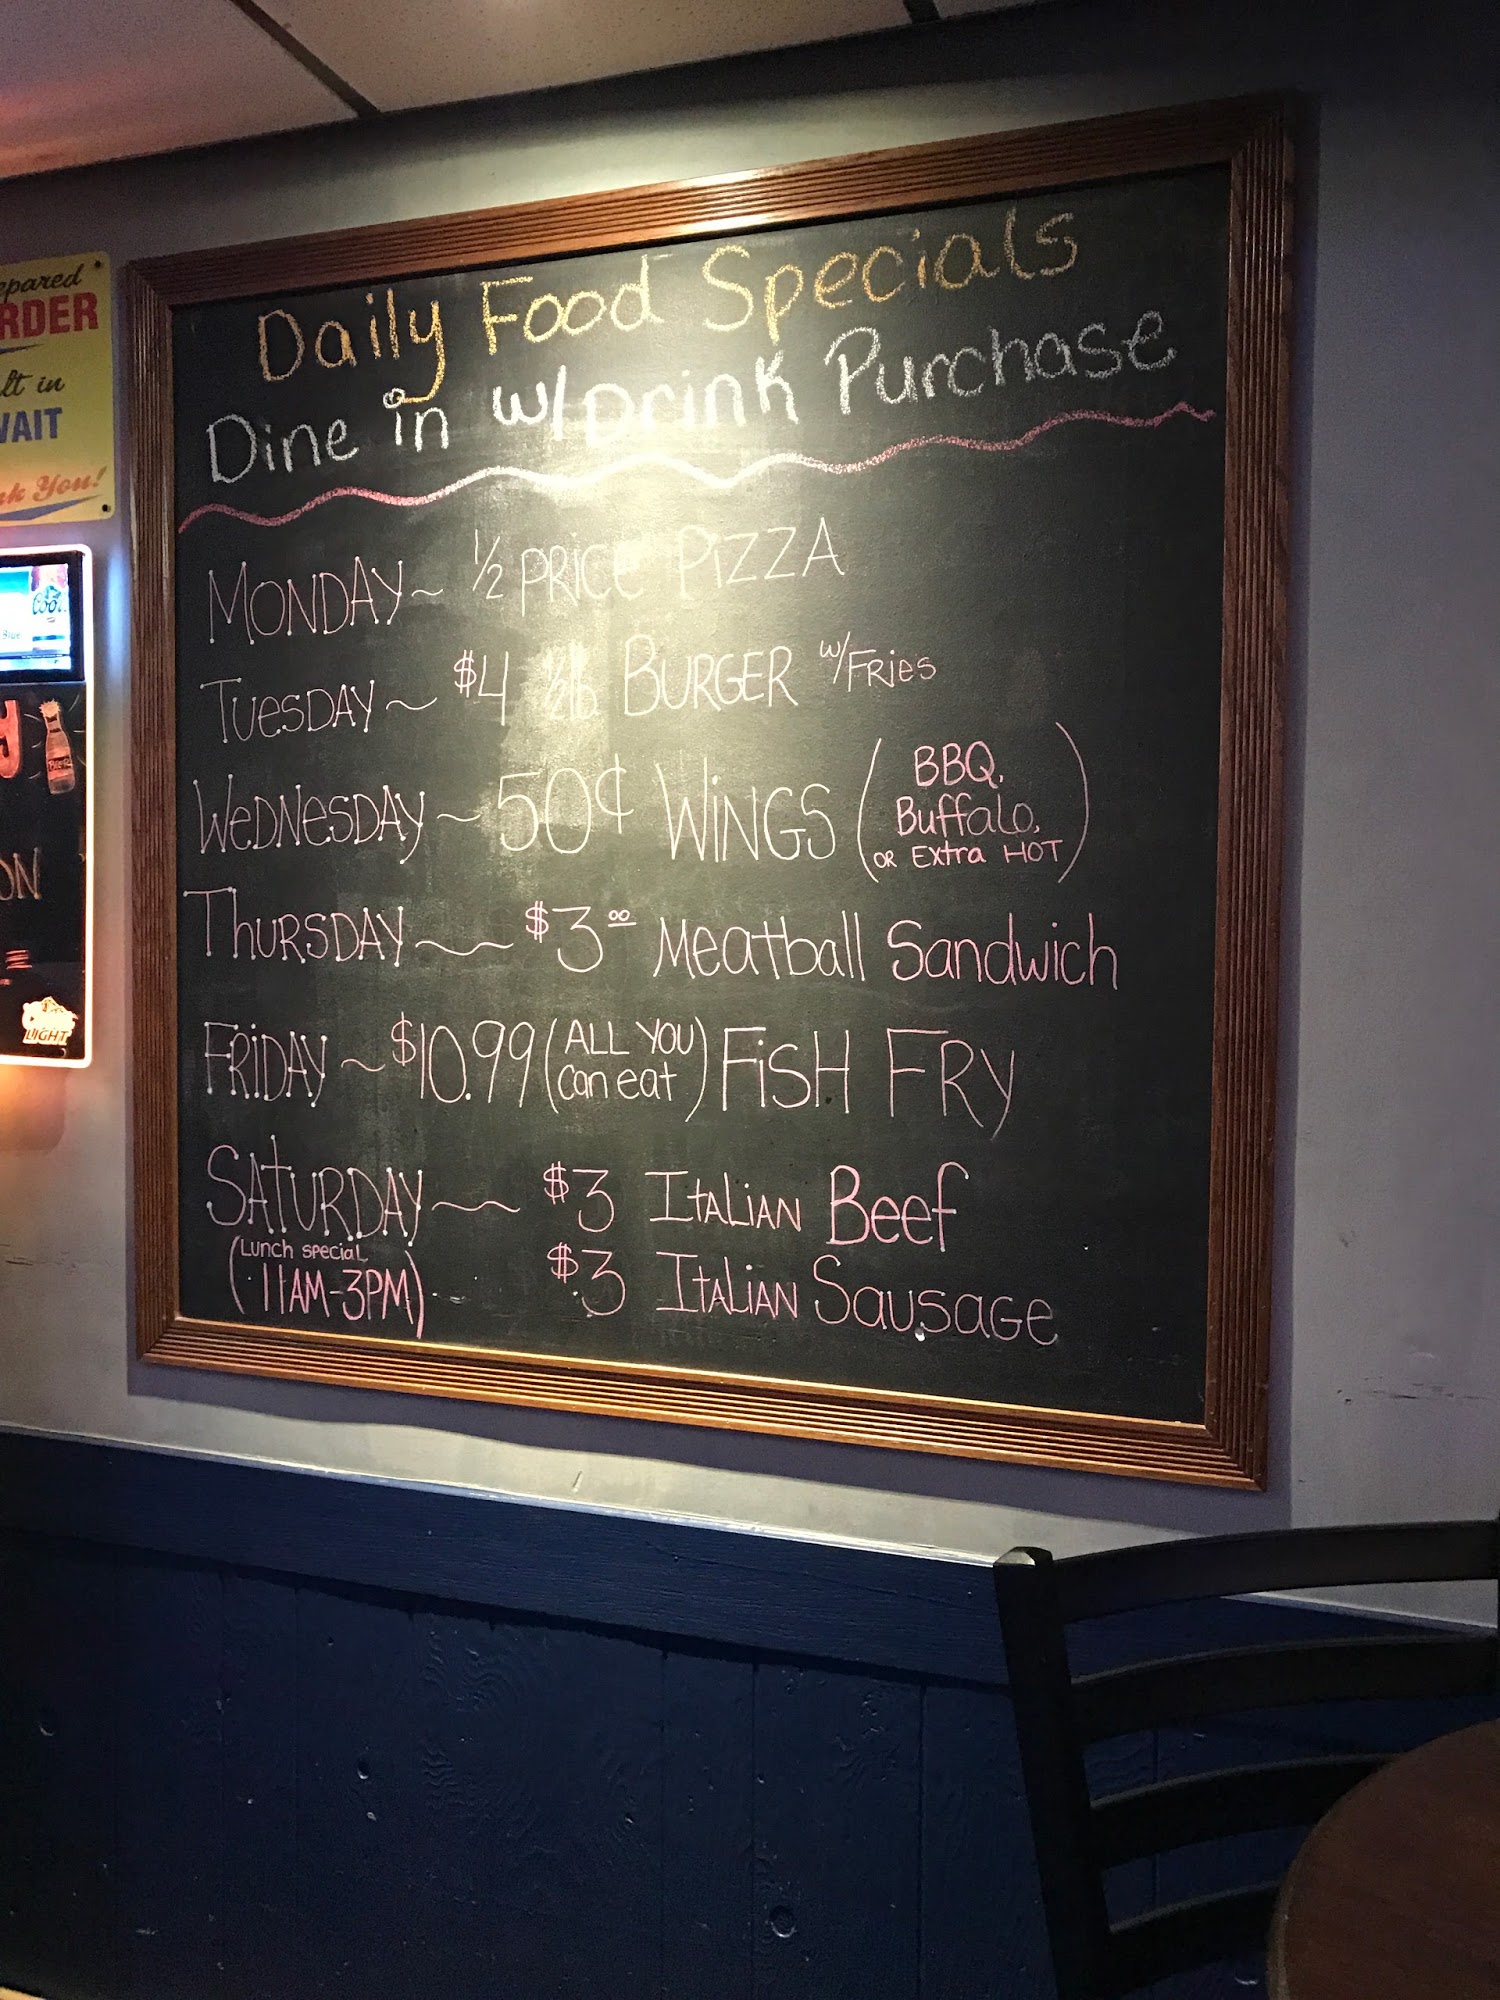 Daily Food Specials
Dine in w/Drink Purchase
MONDAY ~ 1/2 PRICE PiZZA
TUeSDAY ~ $4 1/2 lb BURGER w/FRies
WeDNeSDAY ~ 50¢ WiNGS (BBQ,
Buffalo,
OR Extra HOT)
ThURSDAY ~ $3.00 Meatball Sandwich
FRiDAY ~ $10.99 (ALL YOU
Can eat) FiSH FRY
SATURDAY ~ $3 ITALIAN Beef
(Lunch special
11AM-3PM)
$3 ITALIAN SausaGe
epared
RDER
lt in
WAIT
nk You!
Coors
Blue
BEER
ON
LIGHT